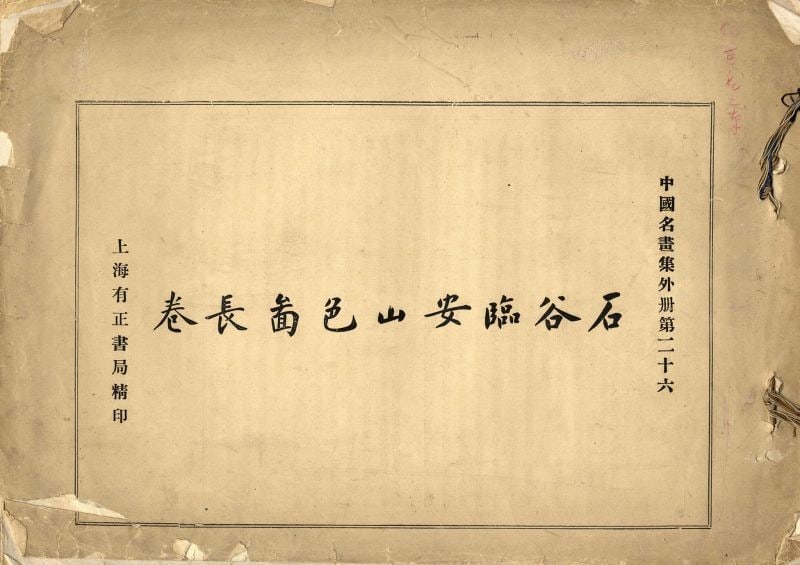 中國名畫集外册第二十六
石谷臨安山色啚長卷
上海有正書局精印